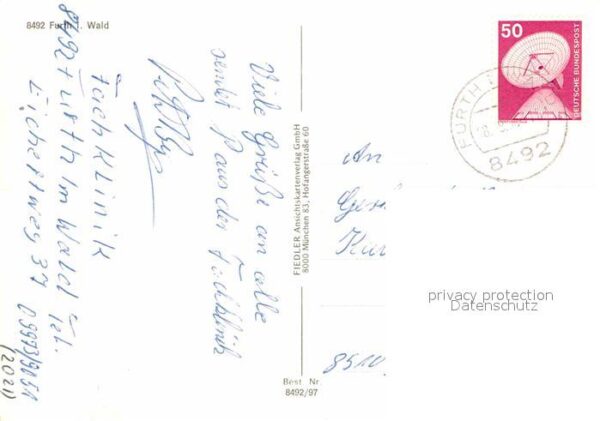 8492 Furth i. Wald
Viele Grüße an alle
sendet P aus der Fachklinik
Fachklinik
8492 Furth im Wald
Eichertweg 37 Tel.
09973/9051
(202)
FIEDLER Ansichtskartenverlag GmbH
8000 München 83, Hofangerstraße 60
Best Nr.
8492/97
50
DEUTSCHE BUNDESPOST
FURTH I
8492
An
8510
privacy protection
Datenschutz